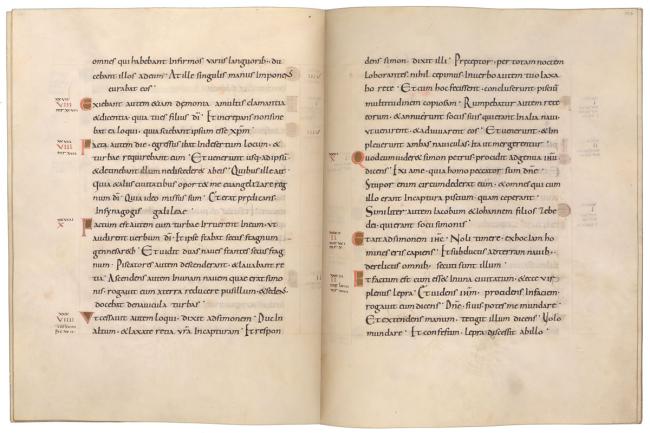 omnes qui habebant infirmos variis languorib; du
cebant illos ad eum. At ille singulis manus imponens
curabat eos.
Exiebant autem etiam demonia a multis clamantia
& dicentia. quia tu es filius di. Et increpans non sine
bat ea loqui. quia sciebant ipsum esse xpm.
Facta autem die. egressus ibat in desertum locum. &
turbae requirebant eum. Et venerunt usq; ad ipsu
& detinebant illum ne discederet ab eis. Quibus ille ait
quia & aliis civitatibus oportet me evangelizare reg
num di. Quia ideo missus sum. Et erat praedicans
in synagogis galileae.
Factum est autem cum turbae irruerent in eum. ut
audirent verbum di. Et ipse stabat secus stagnum
gennesareth. Et vidit duas naves stantes secus stag
num. Piscatores autem descenderant. & lavabant re
tia. Ascendens autem in unam navem quae erat simo
nis. rogavit eum a terra reducere pusillum. & sedens
docebat de navicula turbas.
Ut cessavit autem loqui. dixit ad simonem. Duc in
altum. & laxate retia vra in capturam. Et respon
dens simon. dixit illi. Preceptor. per totam noctem
laborantes. nihil cepimus. In verbo autem tuo laxa
bo rete. Et cum hoc fecissent. concluserunt pisciu
multitudinem copiosam. Rumpebatur autem rete
eorum. & annuerunt sociis qui erant in alia navi
ut venirent. & adiuvarent eos. Et venerunt. & im
pleverunt ambas naviculas. ita ut mergerentur.
Quod cum videret simon petrus. procidit ad genua ihu
dicens. Exi a me. quia homo peccator sum dne.
Stupor enim circumdederat eum. & omnes qui cum
illo erant in captura piscium. quam ceperant.
Similiter autem iacobum & iohannem filios zebe
dei. qui erant socii simonis.
Et ait ad simonem ihc. Noli timere. ex hoc iam ho
mines eris capiens. Et subductis ad terram navib;
derelictis omnib; secuti sunt illum.
Et factum est cum esset in una civitatum. & ecce vir
plenus lepra. Et videns ihm. procidens in faciem.
rogavit eum dicens. Dne. si vis potes me mundare.
Et extendens manum. tetigit illum dicens. Volo
mundare. Et confestim. lepra discessit ab illo.